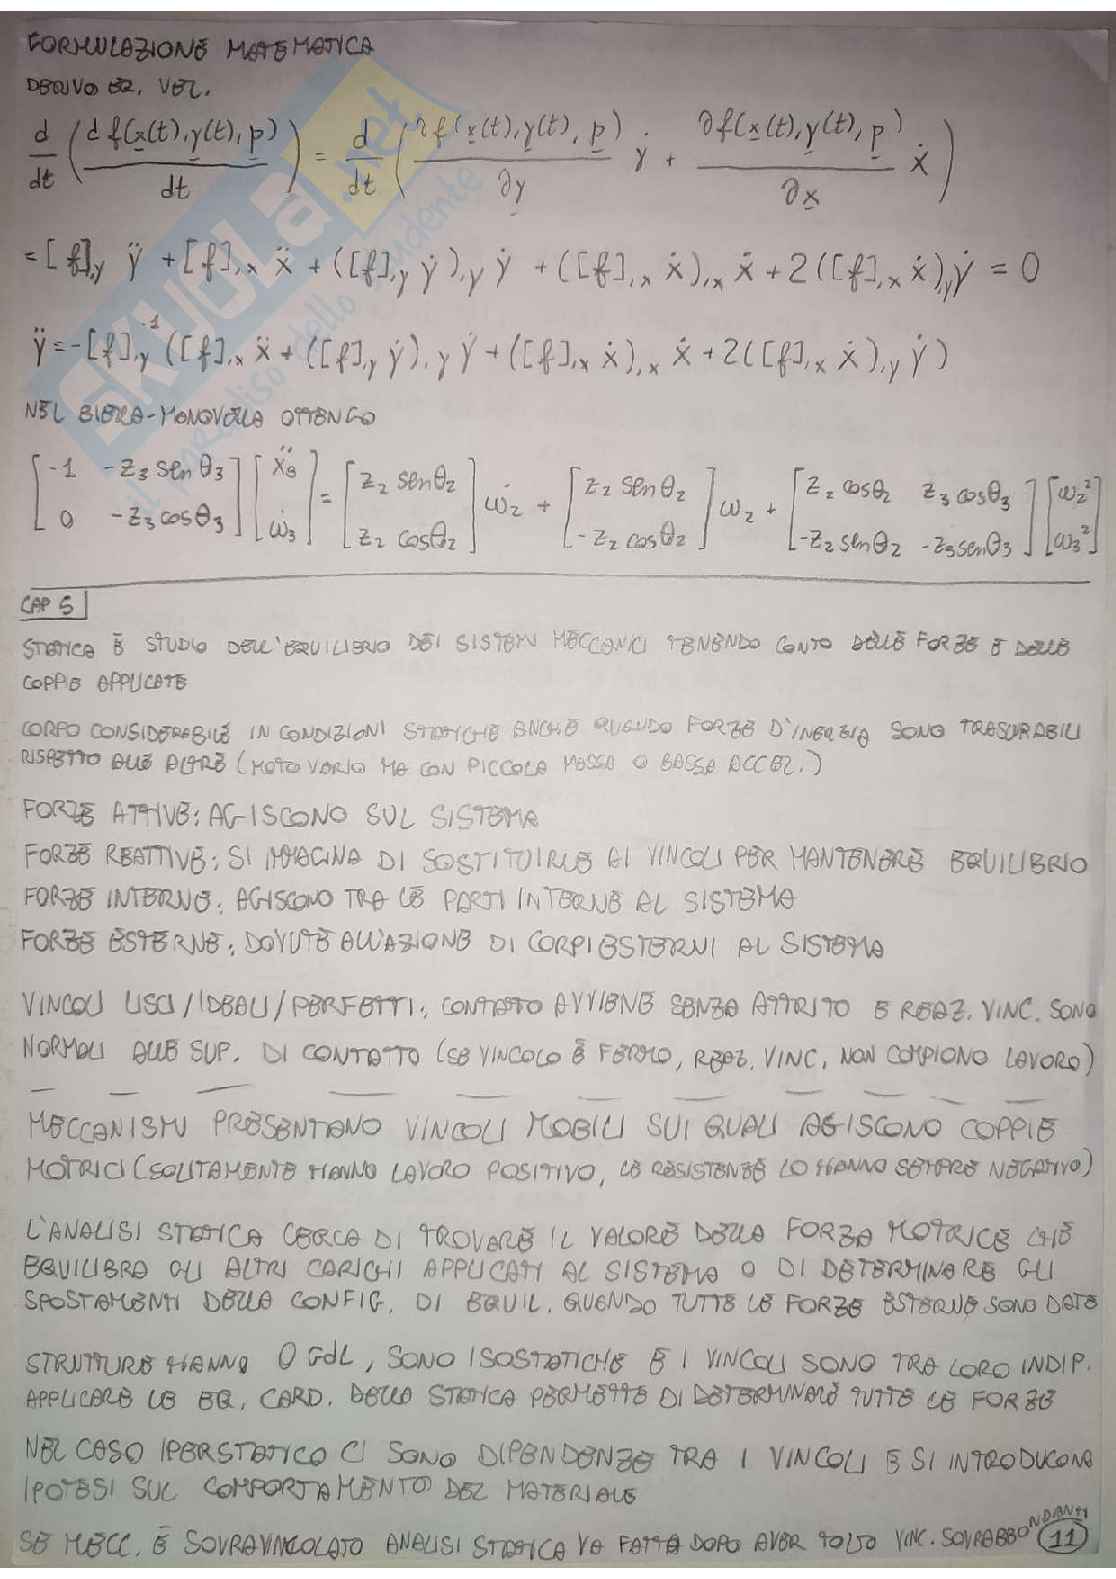 FORMULAZIONE MATEMATICA
DERIVO EQ. VEL.
d/dt (d f(x(t),y(t),p) / dt) = d/dt (∂f(x(t),y(t),p)/∂y ẏ + ∂f(x(t),y(t),p)/∂x ẋ)
=[f],y ÿ +[f],x ẍ + ([f],y ẏ),y ẏ + ([f],x ẋ),x ẋ + 2([f],x ẋ),y ẏ = 0
ÿ=-[f],y⁻¹ ([f],x ẍ + ([f],y ẏ),y ẏ + ([f],x ẋ),x ẋ + 2([f],x ẋ),y ẏ)
NEL BIELLA-MANOVELLA OTTENGO
[-1 -z₃ senθ₃; 0 -z₃ cosθ₃] [ẍB; ω̇₃] = [z₂ senθ₂; z₂ cosθ₂] ω̇₂ + [z₂ senθ₂; -z₂ cosθ₂] ω₂ + [z₂ cosθ₂ z₃ cosθ₃; -z₂ senθ₂ -z₃ senθ₃] [ω₂²; ω₃²]
CAP 5
STATICA È STUDIO DELL'EQUILIBRIO DEI SISTEMI MECCANICI TENENDO CONTO DELLE FORZE E DELLE
COPPIE APPLICATE
CORPO CONSIDERABILE IN CONDIZIONI STATICHE ANCHE QUANDO FORZE D'INERZIA SONO TRASCURABILI
RISPETTO ALLE ALTRE (MOTO VARIO MA CON PICCOLA MASSA O BASSA ACCEL.)
FORZE ATTIVE: AGISCONO SUL SISTEMA
FORZE REATTIVE: SI IMMAGINA DI SOSTITUIRLE AI VINCOLI PER MANTENERE EQUILIBRIO
FORZE INTERNE: AGISCONO TRA LE PARTI INTERNE AL SISTEMA
FORZE ESTERNE: DOVUTE ALL'AZIONE DI CORPI ESTERNI AL SISTEMA
VINCOLI LISCI/IDEALI/PERFETTI: CONTATTO AVVIENE SENZA ATTRITO E REAZ. VINC. SONO
NORMALI ALLE SUP. DI CONTATTO (SE VINCOLO È FERMO, REAZ. VINC. NON COMPIONO LAVORO)
MECCANISMI PRESENTANO VINCOLI MOBILI SUI QUALI AGISCONO COPPIE
MOTRICI (SOLITAMENTE HANNO LAVORO POSITIVO, LE RESISTENZE LO HANNO SEMPRE NEGATIVO)
L'ANALISI STATICA CERCA DI TROVARE IL VALORE DELLA FORZA MOTRICE CHE
EQUILIBRA GLI ALTRI CARICHI APPLICATI AL SISTEMA O DI DETERMINARE GLI
SPOSTAMENTI DELLA CONFIG. DI EQUIL. QUANDO TUTTE LE FORZE ESTERNE SONO DATE
STRUTTURE HANNO 0 GdL, SONO ISOSTATICHE E I VINCOLI SONO TRA LORO INDIP.
APPLICARE LE EQ. CARD. DELLA STATICA PERMETTE DI DETERMINARE TUTTE LE FORZE
NEL CASO IPERSTATICO CI SONO DIPENDENZE TRA I VINCOLI E SI INTRODUCONO
IPOTESI SUL COMPORTAMENTO DEL MATERIALE
SE MECC. È SOVRAVINCOLATO ANALISI STATICA VA FATTA DOPO AVER TOLTO VINC. SOVRABBONDANTI
11
SKUOLA.net
il paradiso dello studente